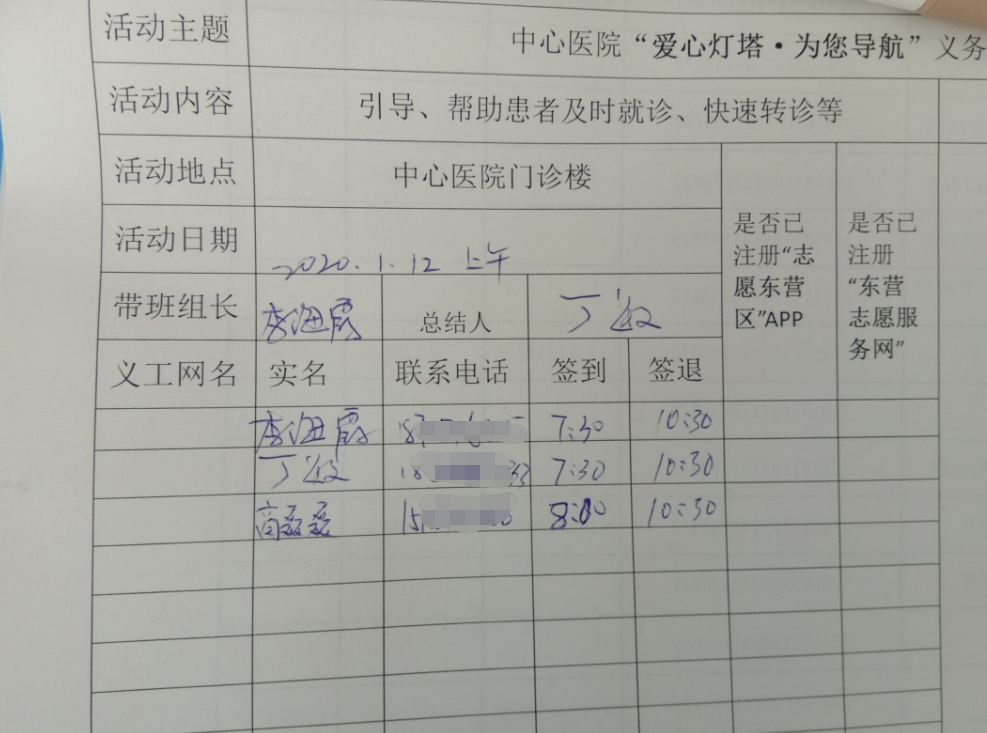 活动主题 中心医院“爱心灯塔·为您导航”义务
活动内容 引导、帮助患者及时就诊、快速转诊等
活动地点 中心医院门诊楼
活动日期 2020.1.12 上午
是否已注册“志愿东营区”APP
是否已注册“东营志愿服务网”
带班组长 李海霞 总结人 丁
义工网名 实名 联系电话 签到 签退
李海霞 7:30 10:30
丁 7:30 10:30
高磊磊 8:00 10:30